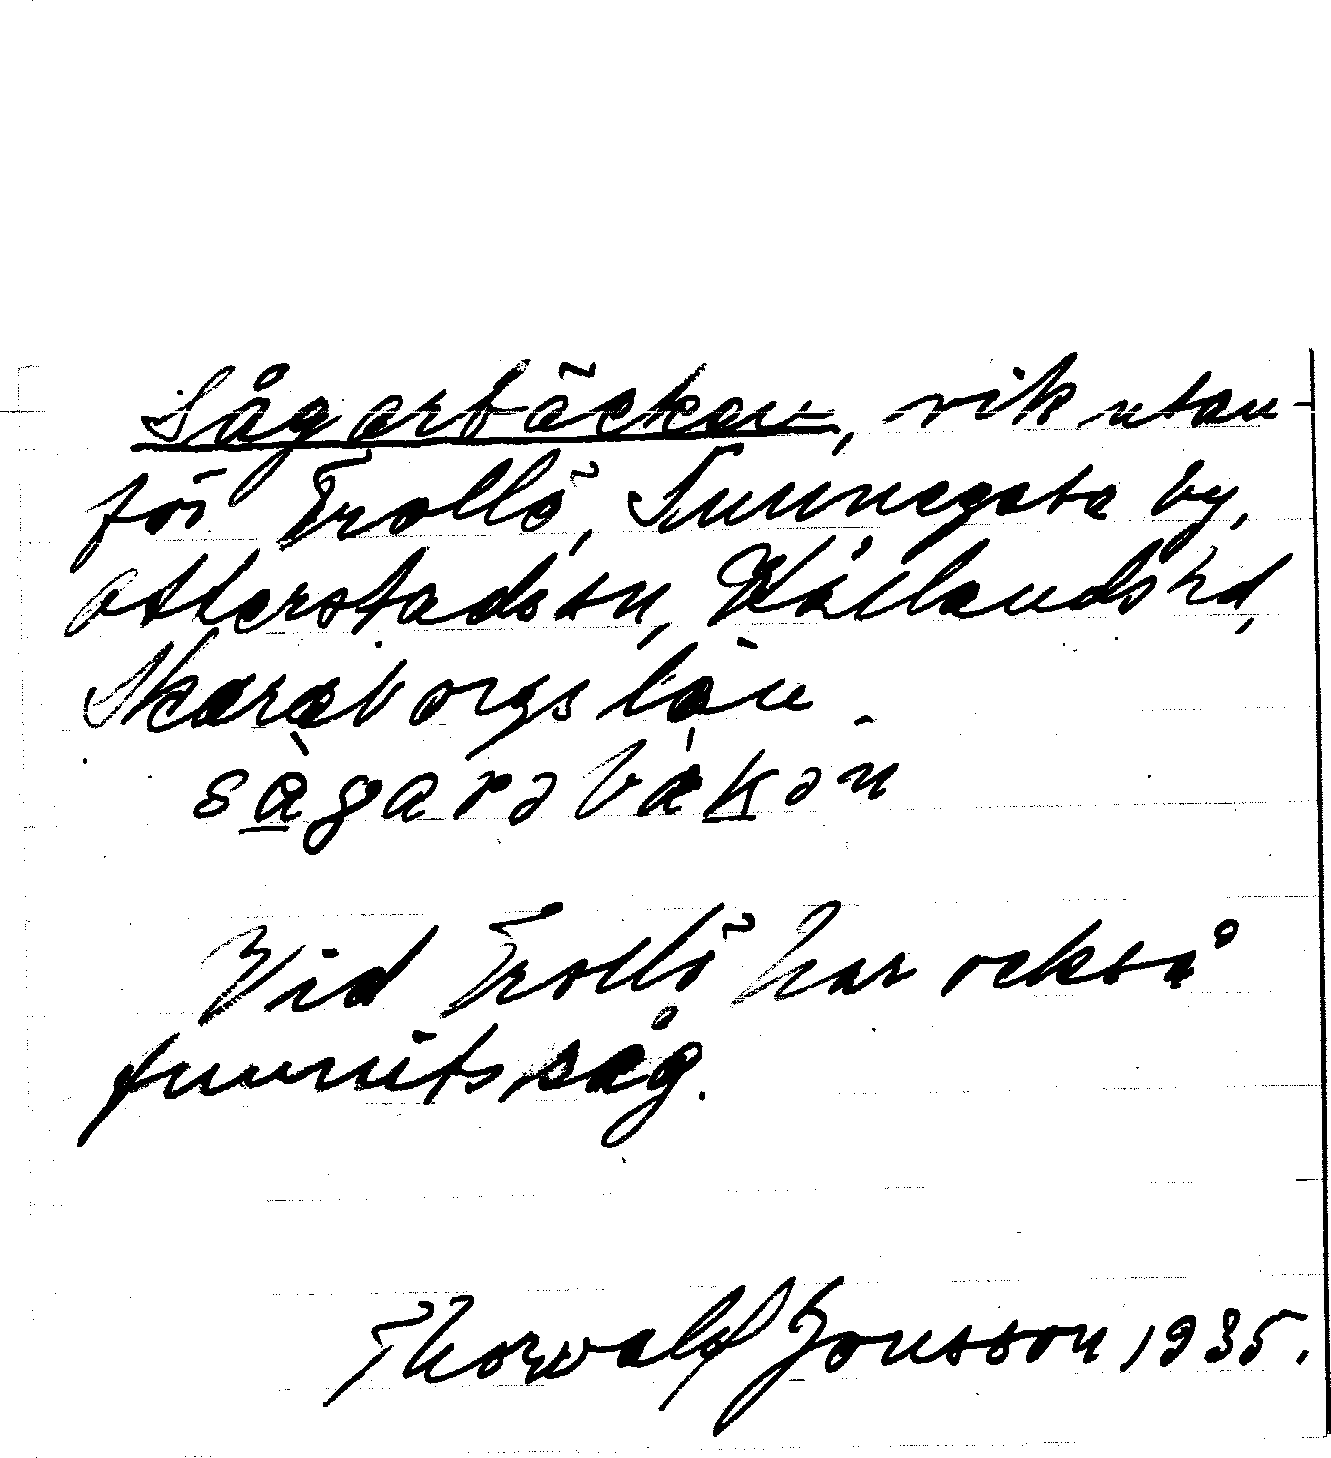 Sågarbäcken, vik utan
för Trollö, Sunnegata by,
Otterstads sn, Kållands hd,
Skaraborgs län.
sågarəbäkən
Vid Trollö har också
funnits såg.
Thorwald Jonsson 1935.